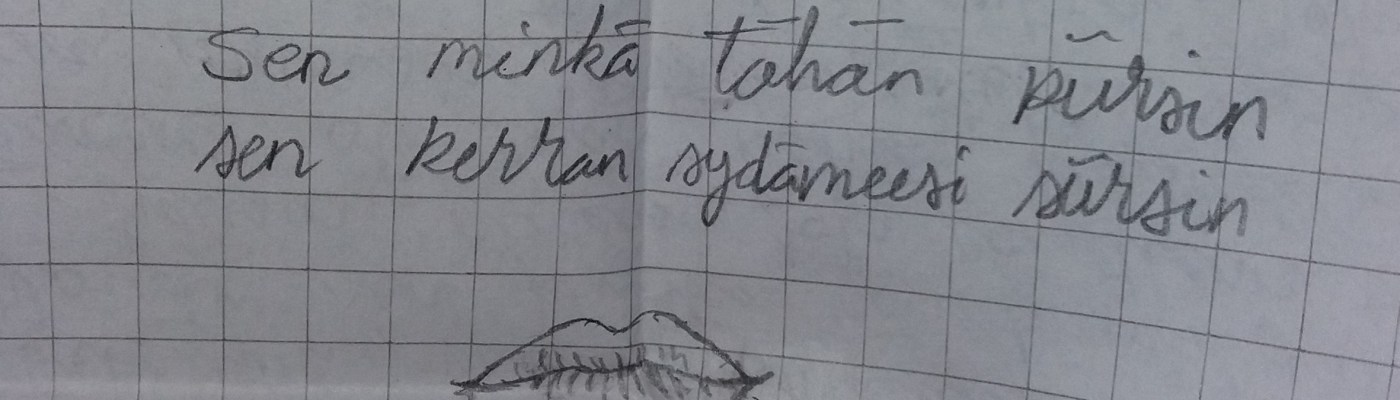 Sen minkä tähän piirsin
sen kerran sydämeesi siirsin